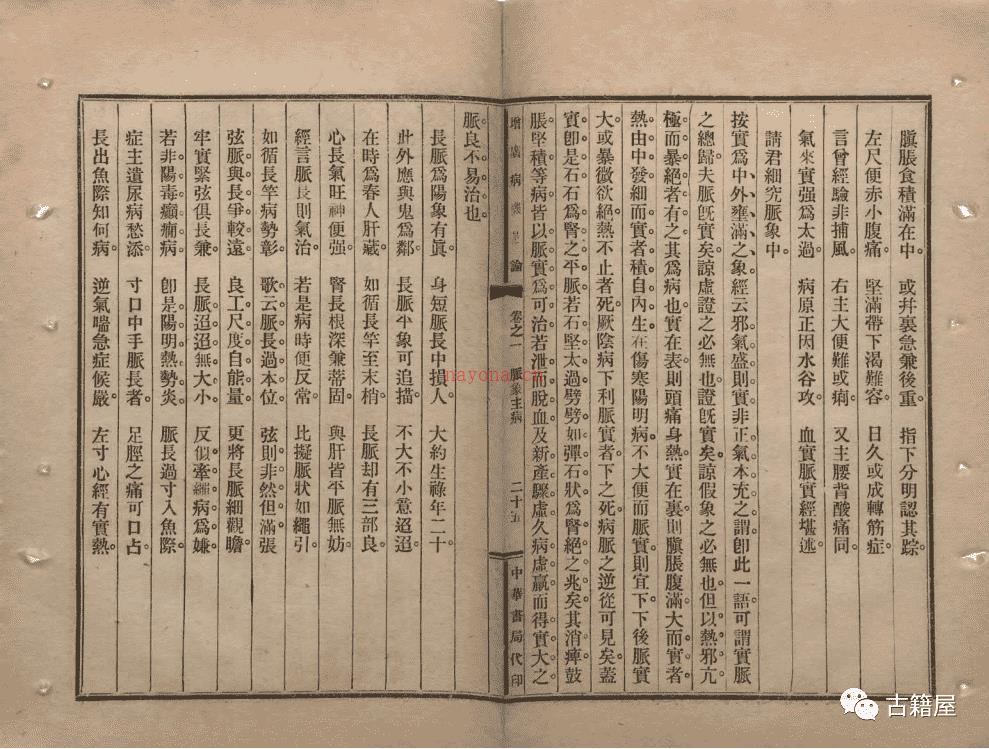 膶脹食積滿在中。或幷裏急兼後重。指下分明認其踪。
左尺便赤小腹痛。堅滿帶下渴難容。日久或成轉筋症。
言曾經驗非捕風。右主大便難或痢。又主腰背酸痛同。
氣來實强爲太過。病原正因水谷攻。血實脈實經堪逃。
請君細究脈象中。
按實爲中外壅滿之象。經云邪氣盛則實。非正氣本充之謂。卽此一語。可謂實脈
之總歸。夫脈旣實矣。諒虛證之必無也。證旣實矣。諒假象之必無也。但以熱邪亢
極而暴絕者有之。其爲病也。實在表則頭痛身熱。實在裏則膶脹腹滿。大而實者。
熱由中發。細而實者。積自內生。在傷寒陽明病。不大便而脈實則宜下。下後脈實
大或暴微欲絕。熱不止者死。厥陰病下利脈實者。下之死。病脈之逆從可見矣。蓋
實卽是石。石爲腎之平脈。若石堅太過。劈劈如彈石狀。爲腎絕之兆矣。其消痺鼓
脹堅積等病。皆以脈實爲可治。若泄而脫血。及新產驟虛。久病虛羸。而得實大之
脈。良不易治也。
增廣病 論 卷之一 脈象主病 二十五 中華書局代印
長脈爲陽象有眞。身短脈長中損人。大約生祿年二十
此外應與鬼爲鄰。長脈平象可追描。不大不小意迢迢。
在時爲春人肝藏。如循長竿至末梢。長脈却有三部良。
心長氣旺神便强。腎長根深兼蒂固。與肝皆平脈無妨。
經言脈長則氣治。若是病時便反常。比擬脈狀如繩引。
如循長竿病勢彰。歌云脈長過本位。弦則非然但滿張。
弦脈與長爭較遠。良工尺度自能量。更將長脈細觀瞻。
牢實緊弦俱長兼。長脈迢迢無大小。反似牽繩病爲嫌。
若非陽毒癲癇病。卽是陽明熱勢炎。脈長過寸入魚際。
症主遺尿病愁添。寸口中手脈長者。足脛之痛可口占。
長出魚際知何病。逆氣喘急症候嚴。左寸心經有實熱。
nayona.cn
古籍屋